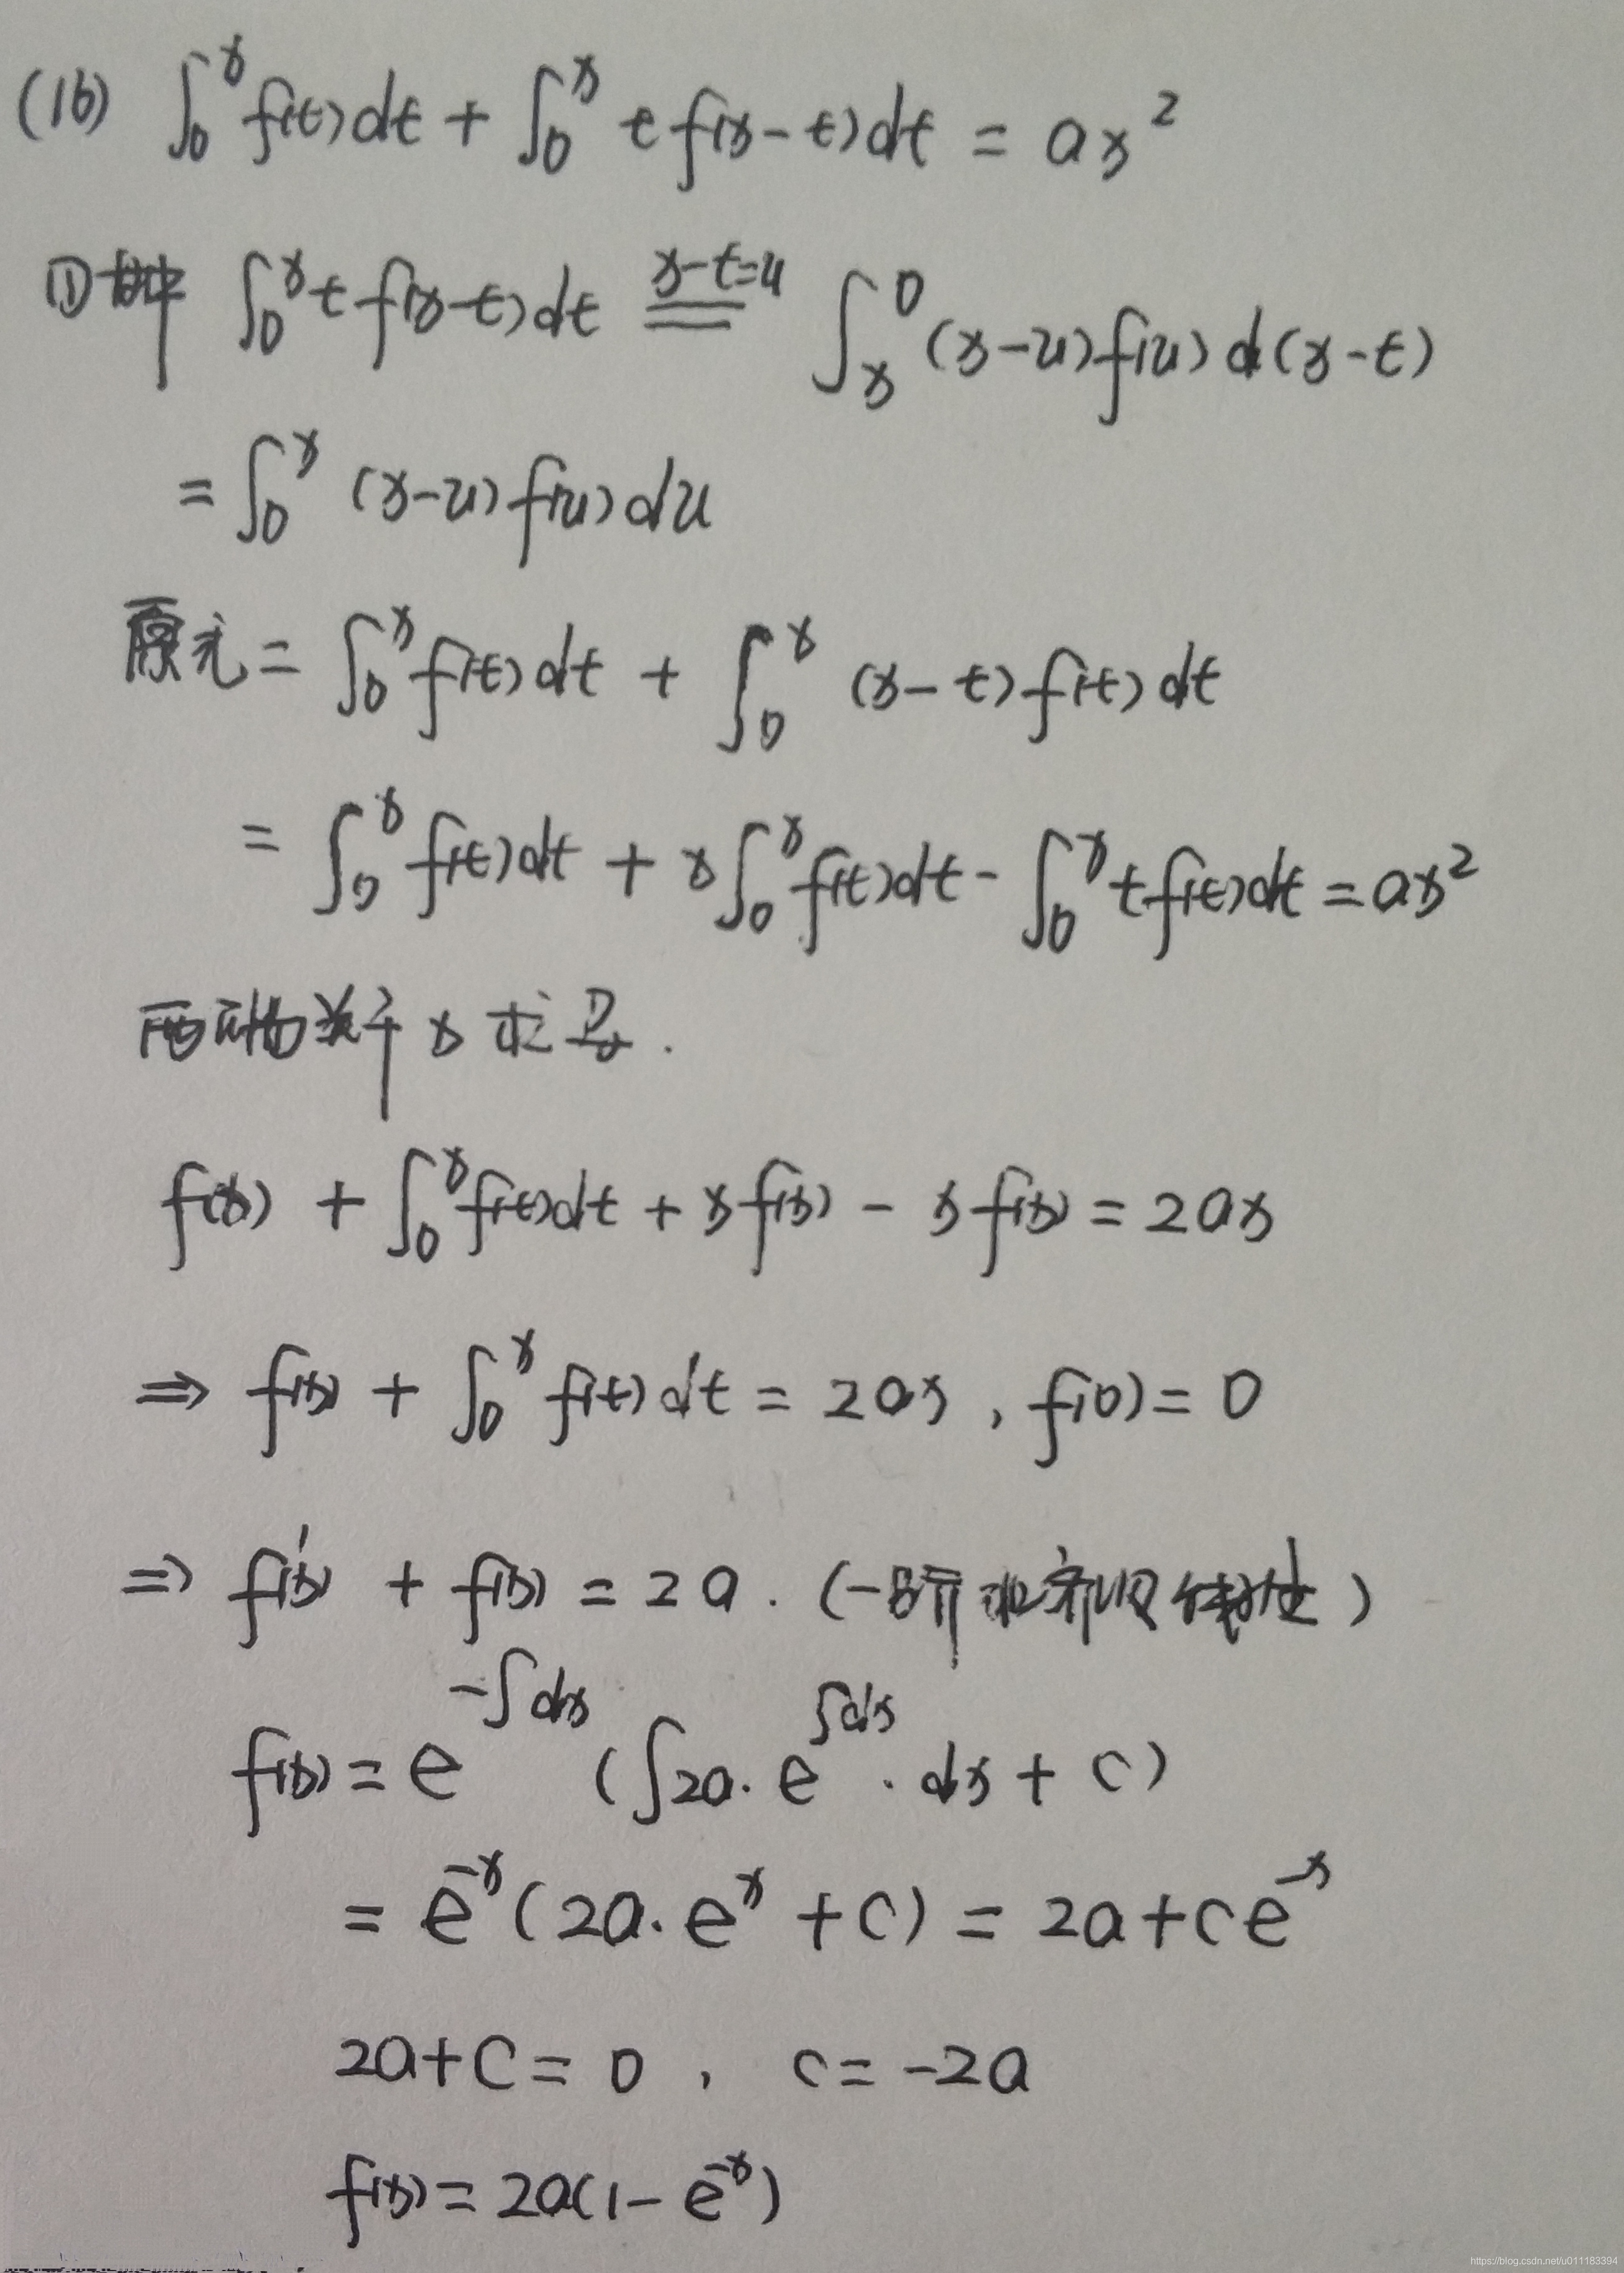 (16) ∫₀ˣ f(t)dt + ∫₀ˣ t f(x-t)dt = ax²
① 其中 ∫₀ˣ t f(x-t)dt (x-t=u)═ ∫ₓ⁰ (x-u)f(u)d(x-t)
= ∫₀ˣ (x-u)f(u)du
原式 = ∫₀ˣ f(t)dt + ∫₀ˣ (x-t)f(t)dt
= ∫₀ˣ f(t)dt + x∫₀ˣ f(t)dt - ∫₀ˣ t f(t)dt = ax²
两端关于 x 求导.
f(x) + ∫₀ˣ f(t)dt + x f(x) - x f(x) = 2ax
⇒ f(x) + ∫₀ˣ f(t)dt = 2ax , f(0) = 0
⇒ f'(x) + f(x) = 2a . (一阶非齐次线性)
f(x) = e^(-∫dx) (∫2a·e^(∫dx)·dx + C)
= e⁻ˣ(2a·eˣ + C) = 2a + Ce⁻ˣ
2a + C = 0 , C = -2a
f(x) = 2a(1 - e⁻ˣ)
https://blog.csdn.net/u011183394